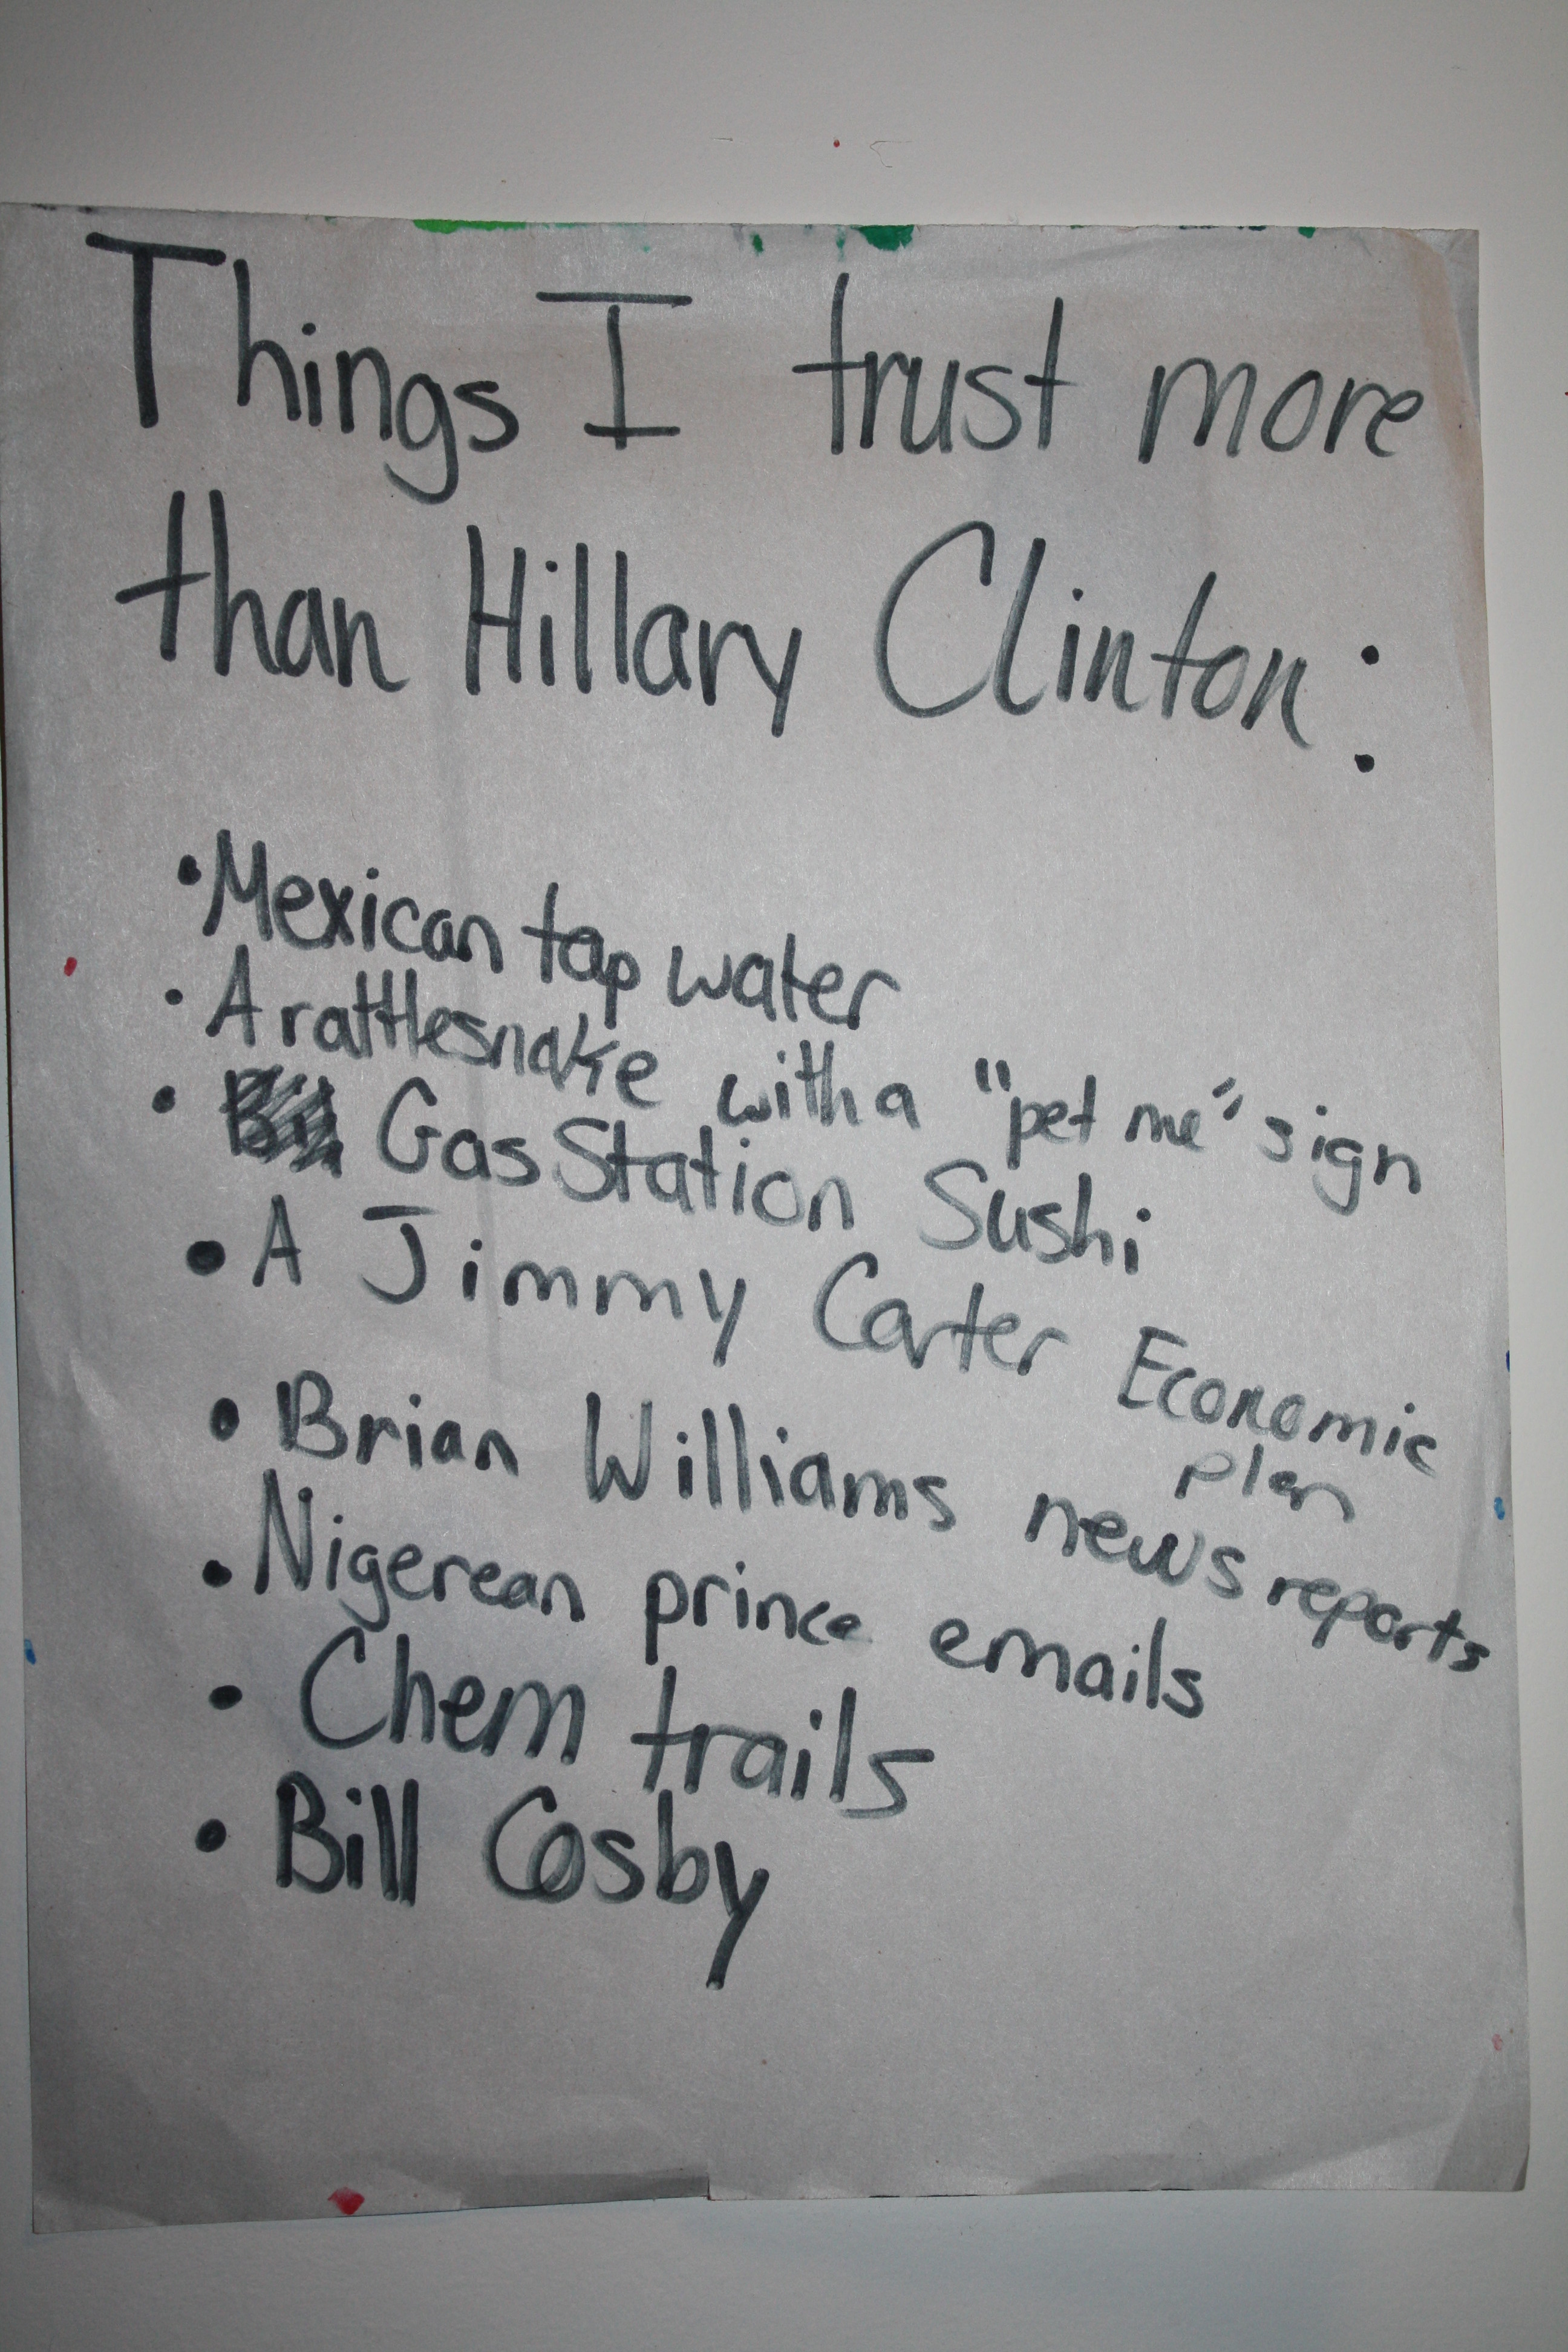 Things I trust more
than Hillary Clinton:
• Mexican tap water
• A rattlesnake with a "pet me" sign
• Gas Station Sushi
• A Jimmy Carter Economic
plan
• Brian Williams news reports
• Nigerean prince emails
• Chem trails
• Bill Cosby